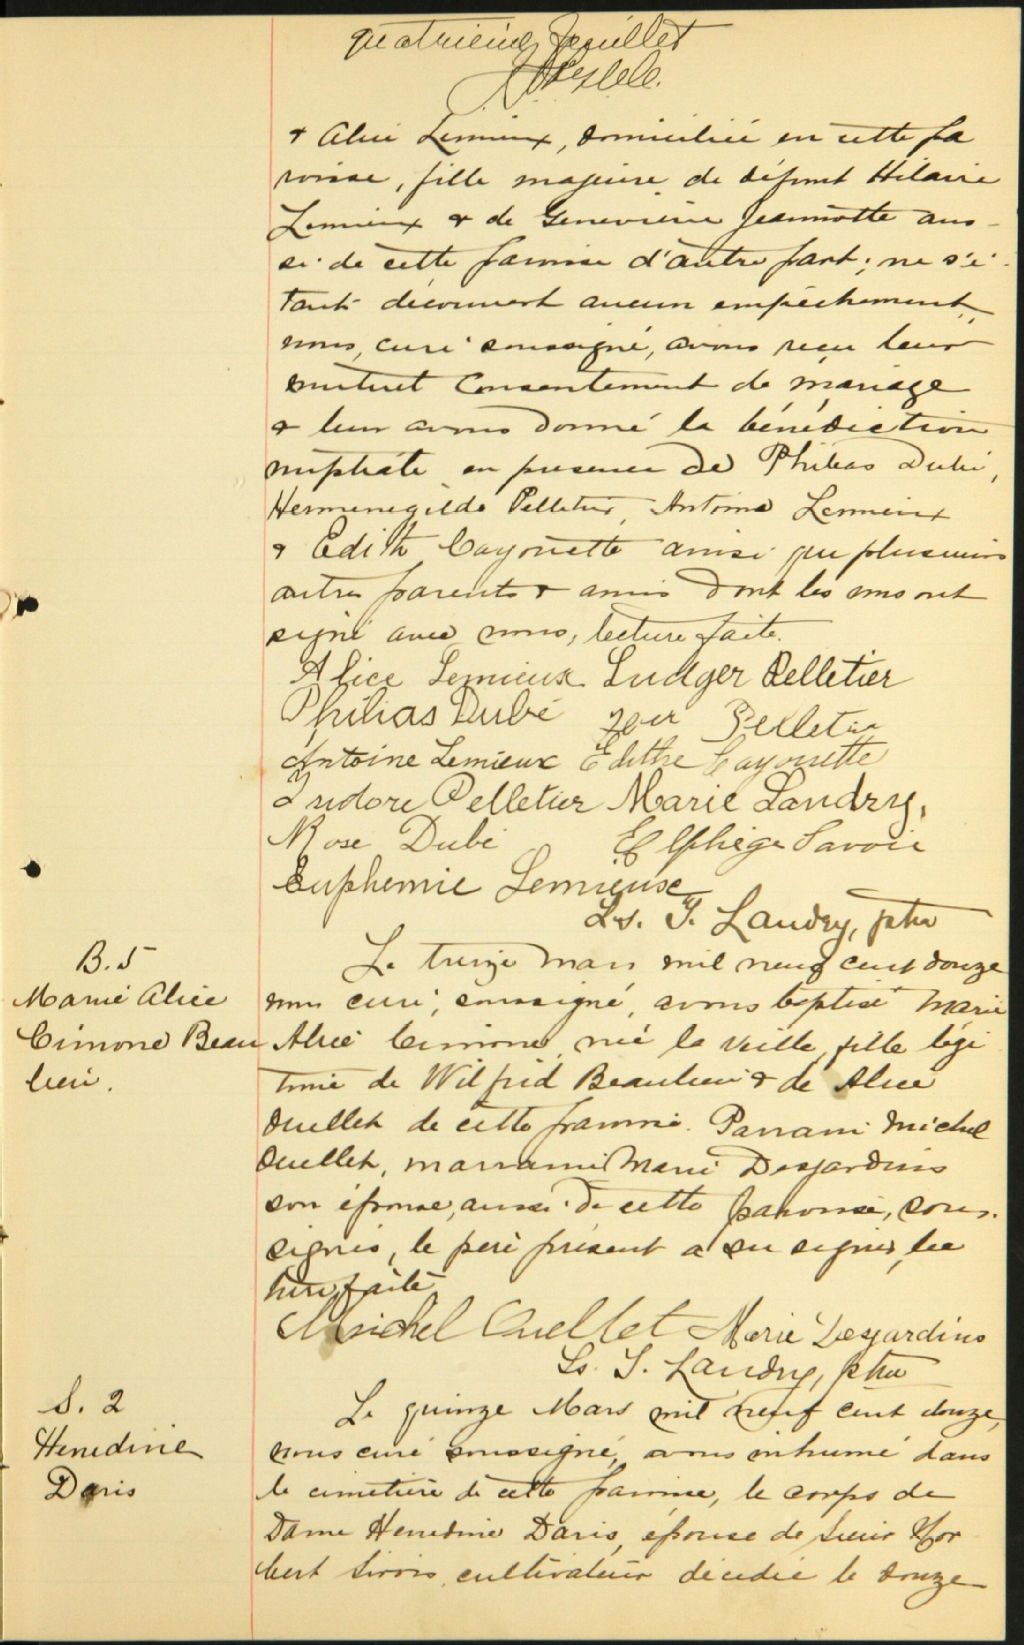 quatrième feuillet
& Alice Lemieux, domiciliée en cette pa
roisse, fille majeure de défunt Hilaire
Lemieux & de Geneviève Jeannotte aus-
si de cette paroisse d'autre part; ne s'é-
tant découvert aucun empêchement,
nous, curé soussigné, avons reçu leur
mutuel consentement de mariage
& leur avons donné la bénédiction
nuptiale en présence de Philias Dubé,
Hermenegilde Pelletier, Antoine Lemieux
& Edith Cayouette ainsi que plusieurs
autres parents & amis dont les uns ont
signé avec nous, lecture faite.
Alice Lemieux Ludger Pelletier
Philias Dubé Pelletier
Antoine Lemieux Edithe Cayouette
Isidore Pelletier Marie Landry,
Rose Dubé Elphège Savoie
Euphemie Lemieux
Ls. J. Landry, ptre
B. 5
Marie Alice
Cimone Beau
lieu.
Le treize mars mil neuf cent douze
nous curé, soussigné, avons baptisé Marie
Alice Cimone, née la veille, fille légi
time de Wilfrid Beaulieu & de Alice
Ouellet de cette paroisse. Parrain Michel
Ouellet, marraine Marie Desjardins
son épouse, aussi de cette paroisse, sous-
signés, le père présent a su signer, lec
ture faite.
Michel Ouellet Marie Desjardins
Ls. J. Landry, ptre
S. 2
Henedine
Daris
Le quinze Mars mil neuf cent douze,
nous curé soussigné, avons inhumé dans
le cimetière de cette paroisse, le corps de
Dame Henedine Daris, épouse de Sieur Nor
bert Sirois, cultivateur décédée le douze